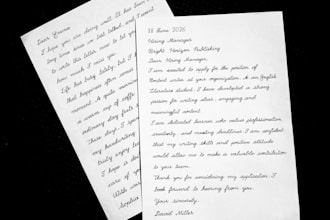 Dear Emma
I hope you are doing well. It has been a
long time since we last talked, and I want
to write this letter now to let you
how much I miss you.
Life has been lately, but I
that happiness often comes
moment. A quiet morning
a warm cup of coffee
ordinary day feels
These days, I spend
my handwriting
truly enjoy
I hope a
care of yo
With warm
Sophie
18 June 2026
Hiring Manager
Bright Horizon Publishing
Dear Hiring Manager,
I am excited to apply for the position of
Content writer at your organization. As an English
Literature student, I have developed a strong
passion for writing clear, engaging and
meaningful content.
I am dedicated learner who values professionalism,
creativity, and meeting deadlines. I am confident
that my writing skills and positive attitude
would allow me to make a valuable contribution
to your team.
Thank you for considering my application. I
look forward to hearing from you.
Your sincerely,
David Miller